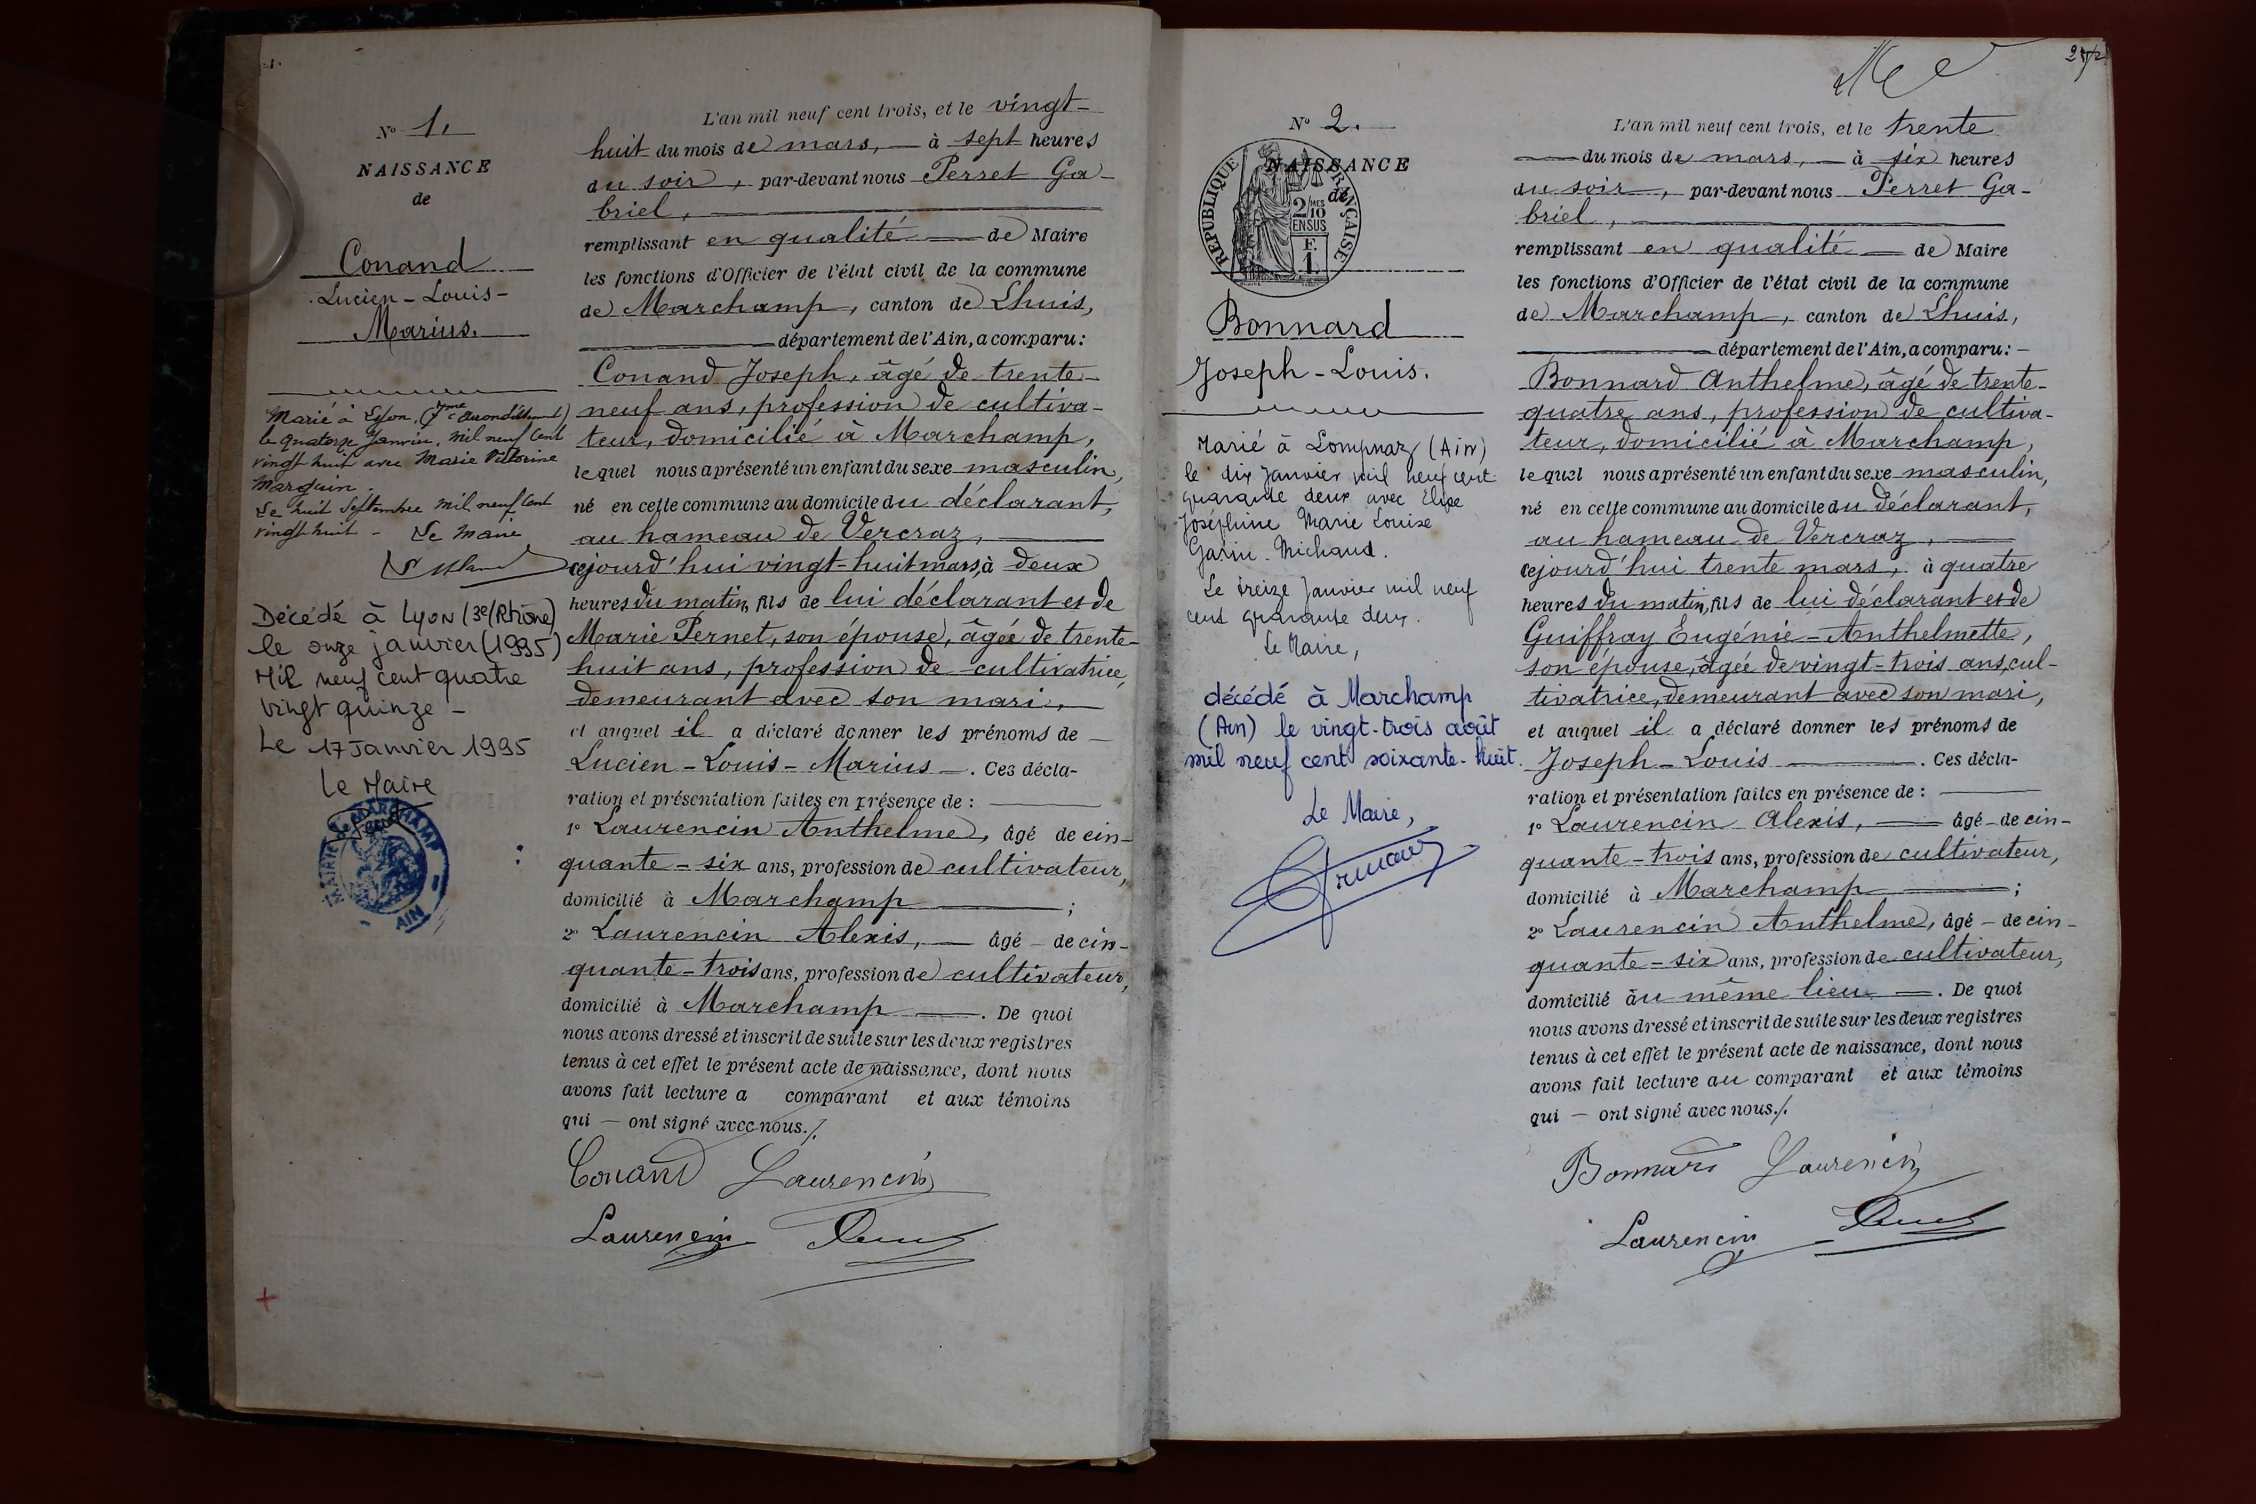 Nº 1.
NAISSANCE
de
Conand
Lucien-Louis-
Marius.
Marié à Lyon,
le quatorze Janvier, mil neuf cent
vingt huit avec Marie Victorine
Marguin.
Le huit Septembre mil neuf cent
vingt huit - Le Maire
Décédé à Lyon (3e/Rhône)
le onze janvier (1995)
Mil neuf cent quatre
vingt quinze -
Le 17 Janvier 1995
Le Maire
MAIRIE de MARCHAMP
AIN
L'an mil neuf cent trois, et le vingt-
huit du mois de mars, — à sept heures
du soir, par-devant nous Perret Ga-
briel,
remplissant en qualité — de Maire
les fonctions d'Officier de l'état civil de la commune
de Marchamp, canton de Lhuis,
département de l'Ain, a comparu :
Conand Joseph, âgé de trente-
neuf ans, profession de cultiva-
teur, domicilié à Marchamp,
lequel nous a présenté un enfant du sexe masculin,
né en cette commune au domicile du déclarant,
au hameau de Vercraz,
cejourd'hui vingt-huit mars, à deux
heures du matin, fils de lui déclarant et de
Marie Pernet, son épouse, âgée de trente-
huit ans, profession de cultivatrice,
demeurant avec son mari,
et auquel il a déclaré donner les prénoms de —
Lucien-Louis-Marius —. Ces décla-
ration et présentation faites en présence de :
1º Laurencin Anthelme, âgé de cin-
quante-six ans, profession de cultivateur,
domicilié à Marchamp ;
2º Laurencin Alexis, — âgé — de cin-
quante-trois ans, profession de cultivateur,
domicilié à Marchamp —. De quoi
nous avons dressé et inscrit de suite sur les deux registres
tenus à cet effet le présent acte de naissance, dont nous
avons fait lecture a comparant et aux témoins
qui — ont signé avec nous./.
Conand Laurencin
Laurencin
Nº 2.
NAISSANCE
de
REPUBLIQUE FRANÇAISE
2/10 MES
EN SUS
F.
1
Bonnard
Joseph-Louis.
Marié à Lompnaz (Ain)
le dix Janvier mil neuf cent
quarante deux avec Elise
Joséphine Marie Louise
Garin-Michaud.
Le treize Janvier mil neuf
cent quarante deux.
Le Maire,
décédé à Marchamp
(Ain) le vingt-trois août
mil neuf cent soixante-huit.
Le Maire,
L'an mil neuf cent trois, et le trente
— du mois de mars, — à six heures
du soir, par-devant nous Perret Ga-
briel,
remplissant en qualité — de Maire
les fonctions d'Officier de l'état civil de la commune
de Marchamp, canton de Lhuis,
département de l'Ain, a comparu : —
Bonnard Anthelme, âgé de trente-
quatre ans, profession de cultiva-
teur, domicilié à Marchamp,
lequel nous a présenté un enfant du sexe masculin,
né en cette commune au domicile du déclarant,
au hameau de Vercraz,
cejourd'hui trente mars, à quatre
heures du matin, fils de lui déclarant et de
Guiffray Eugénie-Anthelmette,
son épouse, âgée de vingt-trois ans, cul-
tivatrice, demeurant avec son mari,
et auquel il a déclaré donner les prénoms de
Joseph-Louis —. Ces décla-
ration et présentation faites en présence de :
1º Laurencin Alexis, — âgé — de cin-
quante-trois ans, profession de cultivateur,
domicilié à Marchamp ;
2º Laurencin Anthelme, âgé — de cin-
quante-six ans, profession de cultivateur,
domicilié au même lieu —. De quoi
nous avons dressé et inscrit de suite sur les deux registres
tenus à cet effet le présent acte de naissance, dont nous
avons fait lecture au comparant et aux témoins
qui — ont signé avec nous./.
Bonnard Laurencin
Laurencin